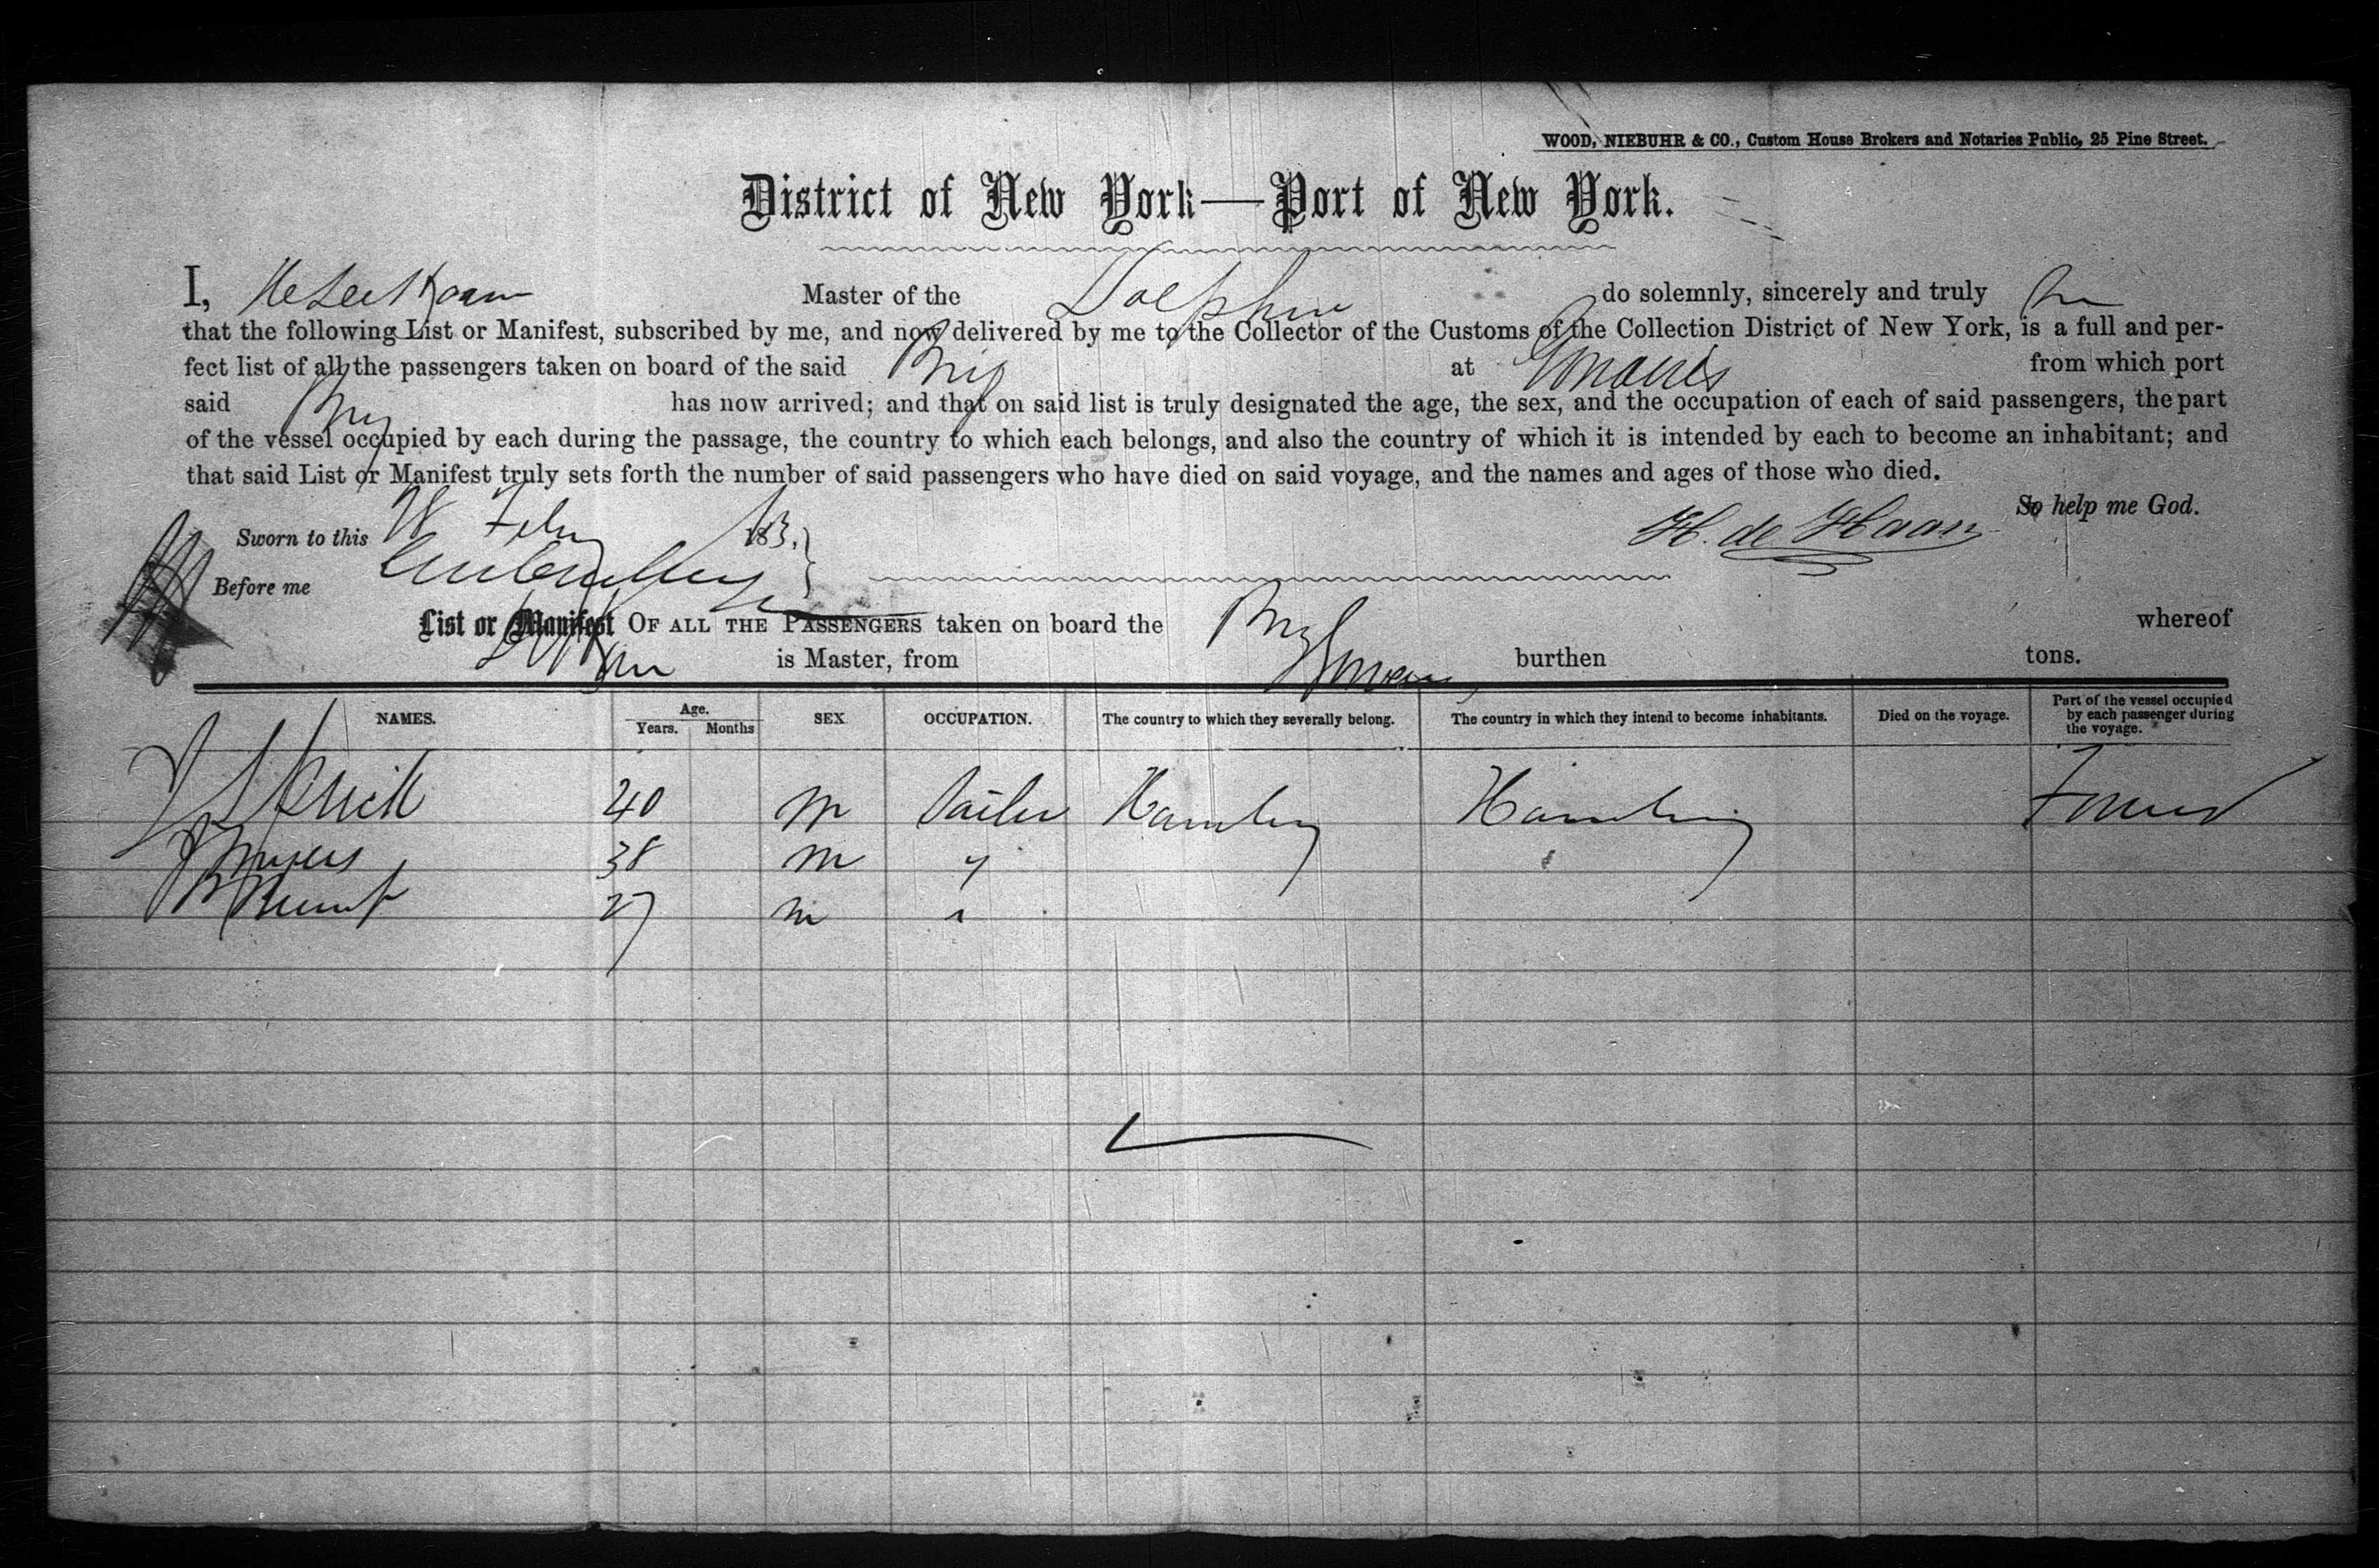 WOOD, NIEBUHR & CO., Custom House Brokers and Notaries Public, 25 Pine Street.
District of New York—Port of New York.
I, Master of the Dolphin do solemnly, sincerely and truly
that the following List or Manifest, subscribed by me, and now delivered by me to the Collector of the Customs of the Collection District of New York, is a full and per-
fect list of all the passengers taken on board of the said Brig at Gonaives from which port
said Brig has now arrived; and that on said list is truly designated the age, the sex, and the occupation of each of said passengers, the part
of the vessel occupied by each during the passage, the country to which each belongs, and also the country of which it is intended by each to become an inhabitant; and
that said List or Manifest truly sets forth the number of said passengers who have died on said voyage, and the names and ages of those who died.
So help me God.
Sworn to this Feby 183. H. de Haan
Before me
List or Manifest OF ALL THE PASSENGERS taken on board the Brig whereof
is Master, from burthen tons.
NAMES. Age. Years. Months SEX OCCUPATION. The country to which they severally belong. The country in which they intend to become inhabitants. Died on the voyage. Part of the vessel occupied by each passenger during the voyage.
40 M Sailor Hamburg Hamburg
38 M "
27 M "